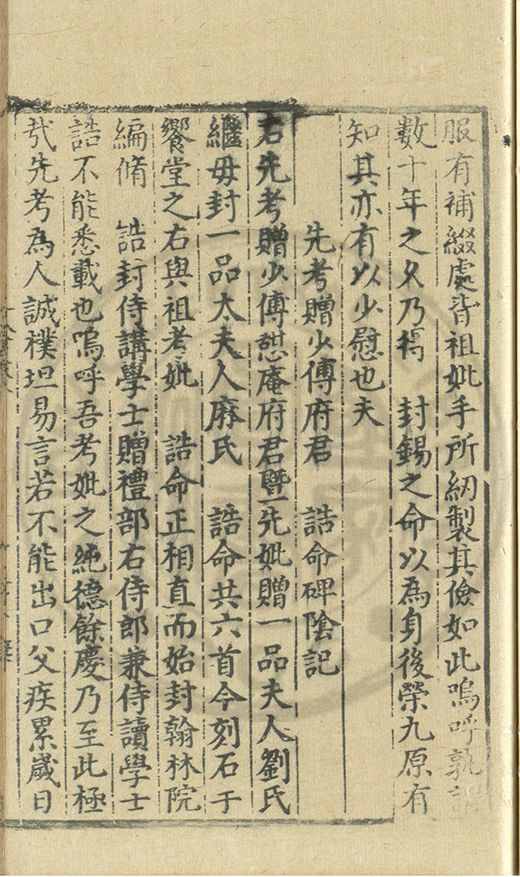 服有補綴處皆祖妣手所紉製其儉如此嗚呼孰謂
數十年之久乃獲　封錫之命以為身後榮九原有
知其亦有以少慰也夫
先考贈少傅府君　誥命碑陰記
右先考贈少傅憩庵府君暨先妣贈一品夫人劉氏
繼母封一品太夫人麻氏　誥命共六首今刻石于
饗堂之右與祖考妣　誥命正相直而始封翰林院
編脩　誥封侍講學士贈禮部右侍郎兼侍讀學士
誥不能悉載也嗚呼吾考妣之純德餘慶乃至此極
㢤先考為人誠樸坦易言若不能出口父疾累歲日